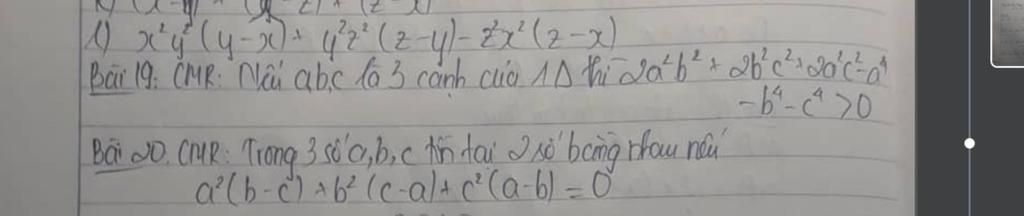 l) x²y²(y-x) + y²z²(z-y) - z²x²(z-x)
Bài 19: CMR: Nếu a,b,c là 3 cạnh của 1Δ thì 2a²b² + 2b²c² + 2a²c² - a⁴
- b⁴ - c⁴ > 0
Bài 20. CMR: Trong 3 số a,b,c tồn tại 2 số bằng nhau nếu
a²(b-c) + b²(c-a) + c²(a-b) = 0